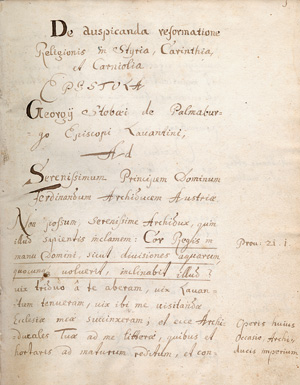 De auspicanda reformatione
Religionis in Styria, Carinthia,
et Carniolia.
EPISTOLA
Georgij Stobæi de Palmabur-
go Episcopi Lavantini,
Ad
Serenissimum Principem Dominum
Ferdinandum Archiducem Austriæ
Non possum, Serenissime Archidux, quin
illud sapientis inclamem: Cor Regis in
manu Domini, sicut divisiones aquarum
quocunq voluerit, inclinabit illud:
vix triduo à te aberam, vix Lavan-
tum tenueram, vix ibi me visitandæ
Ecclesiæ meæ succinxeram; et ecce Archi-
ducales Tuæ ad me litteræ, quibus et
hortaris ad maturum reditum, et con-
Prov. 21. 1
Operis huius
Archi-
ducis imperium